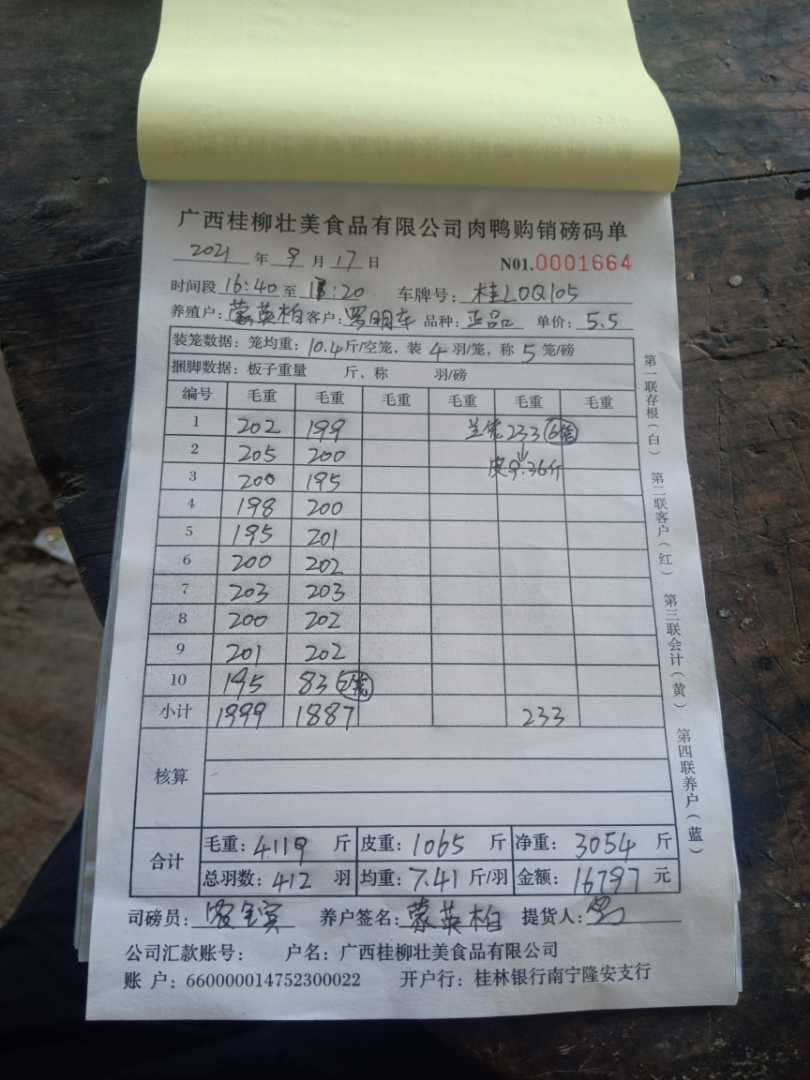 广西桂柳壮美食品有限公司肉鸭购销磅码单
2021 年 9 月 17 日 N01.0001664
时间段 16:40 至 :20 车牌号: 桂L0Q105
养殖户: 蒙英柏 客户: 罗明车 品种: 正品 单价: 5.5
装笼数据: 笼均重: 10.4斤/空笼, 装 4 羽/笼, 称 5 笼/磅
捆脚数据: 板子重量 斤, 称 羽/磅
编号 毛重 毛重 毛重 毛重 毛重 毛重
1 202 199 笼 233 6笼
2 205 200 皮9.36斤
3 200 195
4 198 200
5 195 201
6 200 202
7 203 203
8 200 202
9 201 202
10 195 83 2笼
小计 1999 1887 233
核算
合计 毛重: 4119 斤 皮重: 1065 斤 净重: 3054 斤
总羽数: 412 羽 均重: 7.41 斤/羽 金额: 16797 元
司磅员: 养户签名: 蒙英柏 提货人:
公司汇款账号: 户名: 广西桂柳壮美食品有限公司
账 户: 660000014752300022 开户行: 桂林银行南宁隆安支行
第一联存根(白)
第二联客户(红)
第三联会计(黄)
第四联养户(蓝)